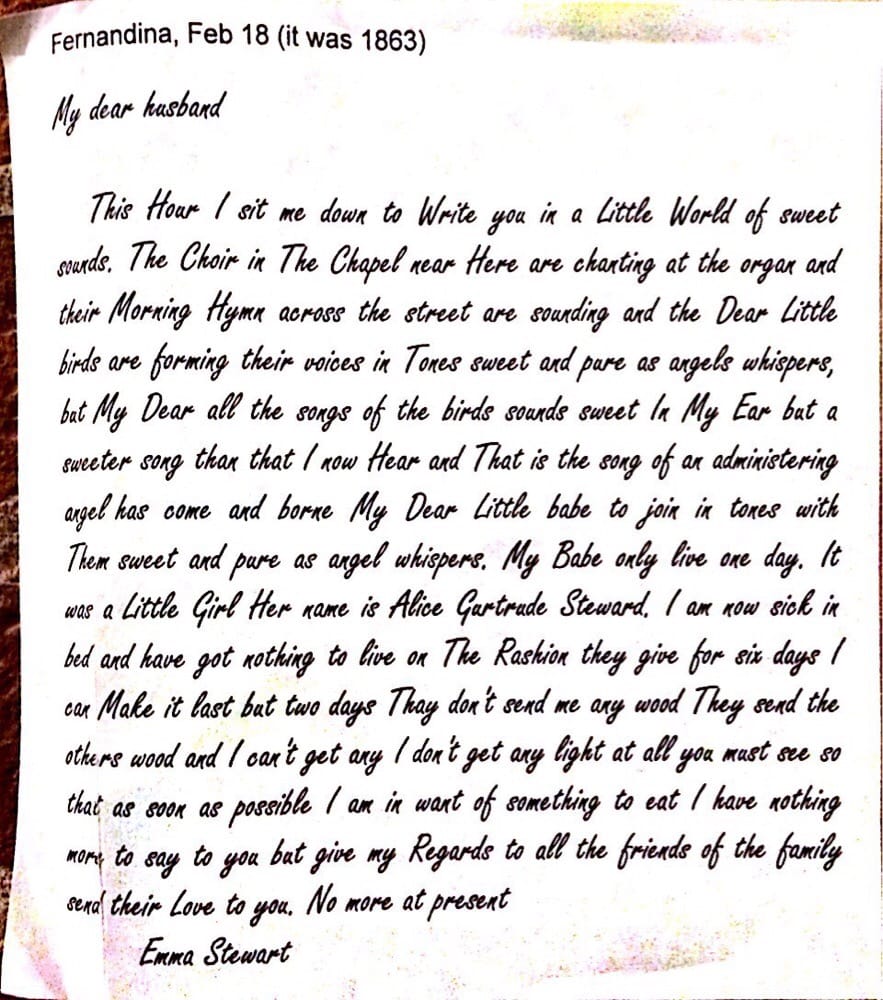 Fernandina, Feb 18 (it was 1863)
My dear husband
This Hour I sit me down to Write you in a Little World of sweet
sounds. The Choir in The Chapel near Here are chanting at the organ and
their Morning Hymn across the street are sounding and the Dear Little
birds are forming their voices in Tones sweet and pure as angels whispers,
but My Dear all the songs of the birds sounds sweet In My Ear but a
sweeter song than that I now Hear and That is the song of an administering
angel has come and borne My Dear Little babe to join in tones with
Them sweet and pure as angel whispers. My Babe only live one day. It
was a Little Girl Her name is Alice Gurtrude Steward. I am now sick in
bed and have got nothing to live on The Rashion they give for six days I
can Make it last but two days Thay don't send me any wood They send the
others wood and I can't get any I don't get any light at all you must see so
that as soon as possible I am in want of something to eat I have nothing
more to say to you but give my Regards to all the friends of the family
send their Love to you. No more at present
Emma Stewart